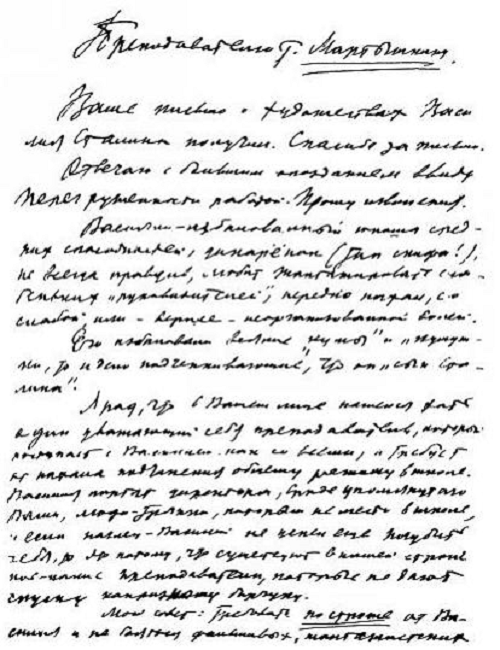 Преподавателю т. Мартышину.
Ваше письмо о художествах Васи-
лия Сталина получил. Спасибо за письмо.
Отвечаю с большим опозданием ввиду
перегруженности работой. Прошу извинения.
Василий – избалованный юноша сред-
них способностей, дикарёнок (тип скифа!),
не всегда правдив, любит шантажировать сла-
беньких „руководителей", нередко нахал, со
слабой, или – вернее – неорганизованной волей.
Его избаловали всякие „кумы" и „кумуш-
ки", то и дело подчеркивающие, что он „сын Ста-
лина".
Я рад, что в Вашем лице нашелся хоть
один уважающий себя преподаватель, который
поступает с Василием, как со всеми, и требует
от нахала подчинения общему режиму в школе.
Василия портят директора, вроде упомянутого
Вами, люди-тряпки, которым не место в школе,
и если нахал-Василий не успел еще погубить
себя, то это потому, что существуют в нашей стране
кое-какие преподаватели, которые не дают
спуску капризному барчуку.
Мой совет: требовать построже от Ва-
силия и не бояться фальшивых, шантажистских